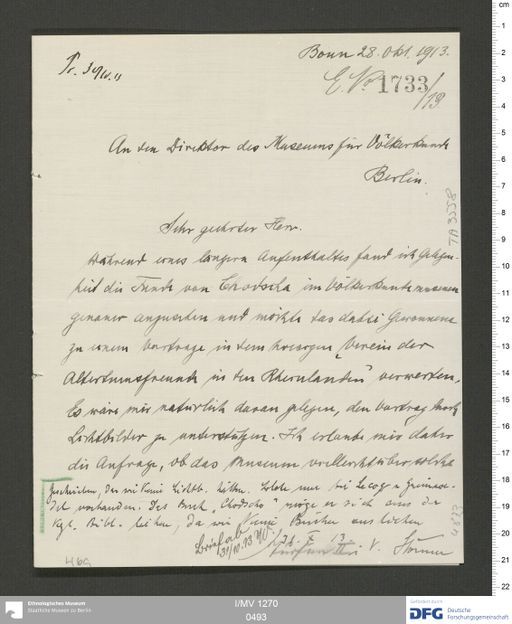 Bonn 28. Okt. 1913.
Pr. 
E. No 1733/13
An den Direktor des Museums für Völkerkunde
Berlin.
TA 3558
Sehr geehrter Herr.
Während eines längeren Aufenthaltes fand ich Gelegen-
heit die Funde von Chodscha im Völkerkundemuseum
genauer anzusehen und möchte das dabei Gewonnene
zu einem Vortrage, in dem hiesigen "Verein der
Altertumsfreunde in den Rheinlanden" verwerten.
Es wäre mir natürlich daran gelegen, den Vortrag durch
Lichtbilder zu unterstützen. Ich erlaube mir daher
die Anfrage, ob das Museum vielleicht über solche
Geschrieben, dass wir keine Lichtb. hätten. Solche nur bei Lecoq u. Grünwe-
del vorhanden. Das Buch "Chodscho" möge er sich aus der
Kgl. Bibl. leihen, da wir keine Bücher
Brief ab
31/10.13
13.
I. V.
469
cm
1
2
3
4
5
6
7
8
9
10
11
12
13
14
15
16
17
18
19
20
21
22
Ethnologisches Museum
Staatliche Museen zu Berlin
I/MV 1270
0493
Gefördert durch
DFG Deutsche
Forschungsgemeinschaft